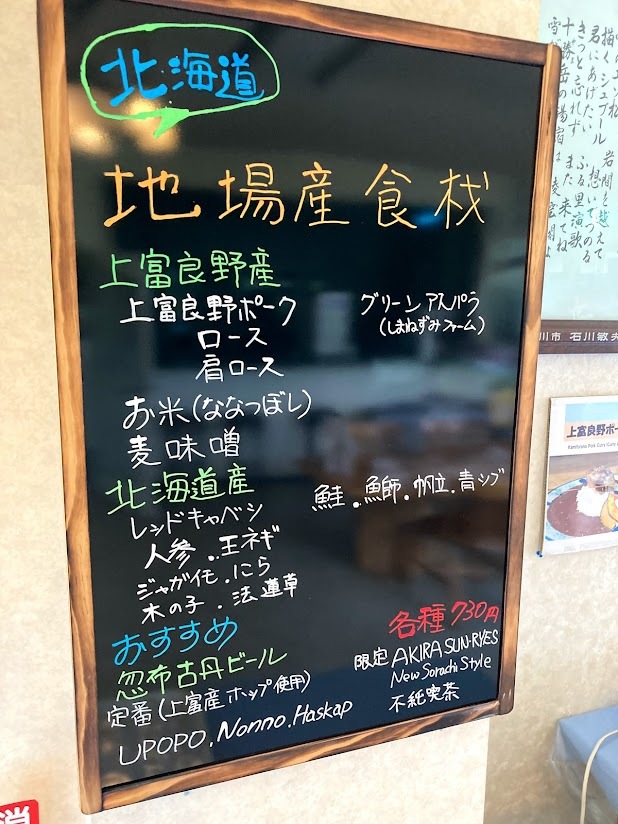 北海道
地場産食材
上富良野産
上富良野ポーク
ロース
肩ロース
お米(ななつぼし)
麦味噌
グリーンアスパラ
(しまねずみファーム)
北海道産
レッドキャベツ
人参.玉ネギ
ジャガイモ.にら
木の子.法蓮草
鮭.魚師.帆立.青ツブ
おすすめ
忽布古丹ビール
定番(上富産ホップ使用)
UPOPO.Nonno.Haskap
各種730円
限定 AKIRA SUN-RYES
New Sorachi Style
不純喫茶
君にあげたい 想いでつのる
きっと忘れず ふる里演歌
川市 石川敏夫
上富良野ポー
消